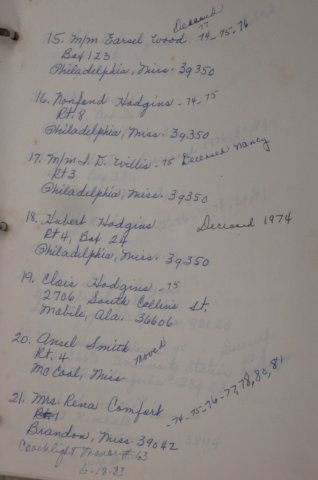 Deceased
77
15. M/m Earsel Wood - 74 - 75 - 76
Box 123
Philadelphia, Miss. 39350
16. Honford Hodgins - 74 - 75
Rt. 8
Philadelphia, Miss. 39350
17. M/m J. D. Willis - 75 Deceased Nancy
Rt 3
Philadelphia, Miss. 39350
18. Hubert Hodgins Deceased 1974
Rt 4, Box 24
Philadelphia, Miss. 39350
19. Clois Hodgins - 75
2706 South Collins St,
Mobile, Ala. 36606
20. Ansel Smith moved
Rt. 4
McCool, Miss
21. Mrs Rena Comfort - 74 - 75 - 76 - 77, 78, 80, 81
Rt 1
Brandon, Miss 39042
Coachlight Manor # 63
6-18-83